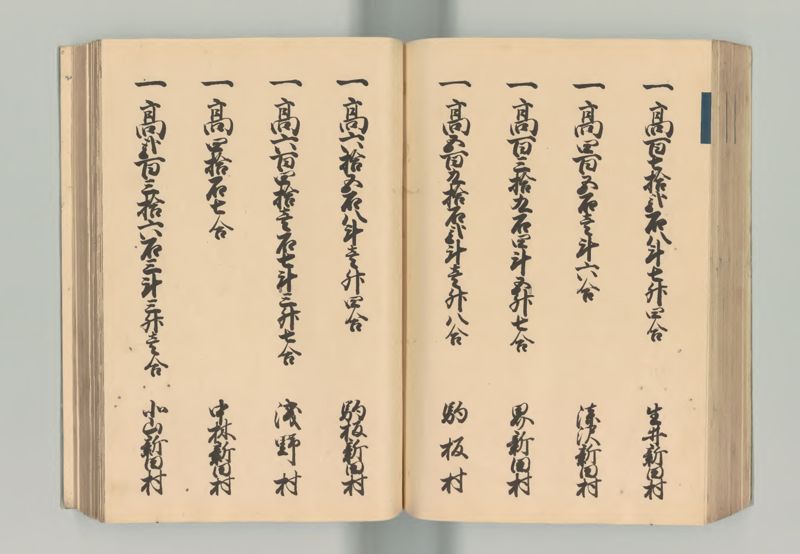 一高百七拾弐石八斗七升四合 生井新田村
一高四百五石壱斗六合 新田村
一高百三拾九石四斗五升七合 界新田村
一高五百九拾石弐斗壱升八合 駒板村
一高六拾五石八斗壱升四合 駒板新田村
一高六百四拾壱石七斗三升七合 浅野村
一高四拾石七合 中林新田村
一高弐百三拾六石三斗三升壱合 小山新田村